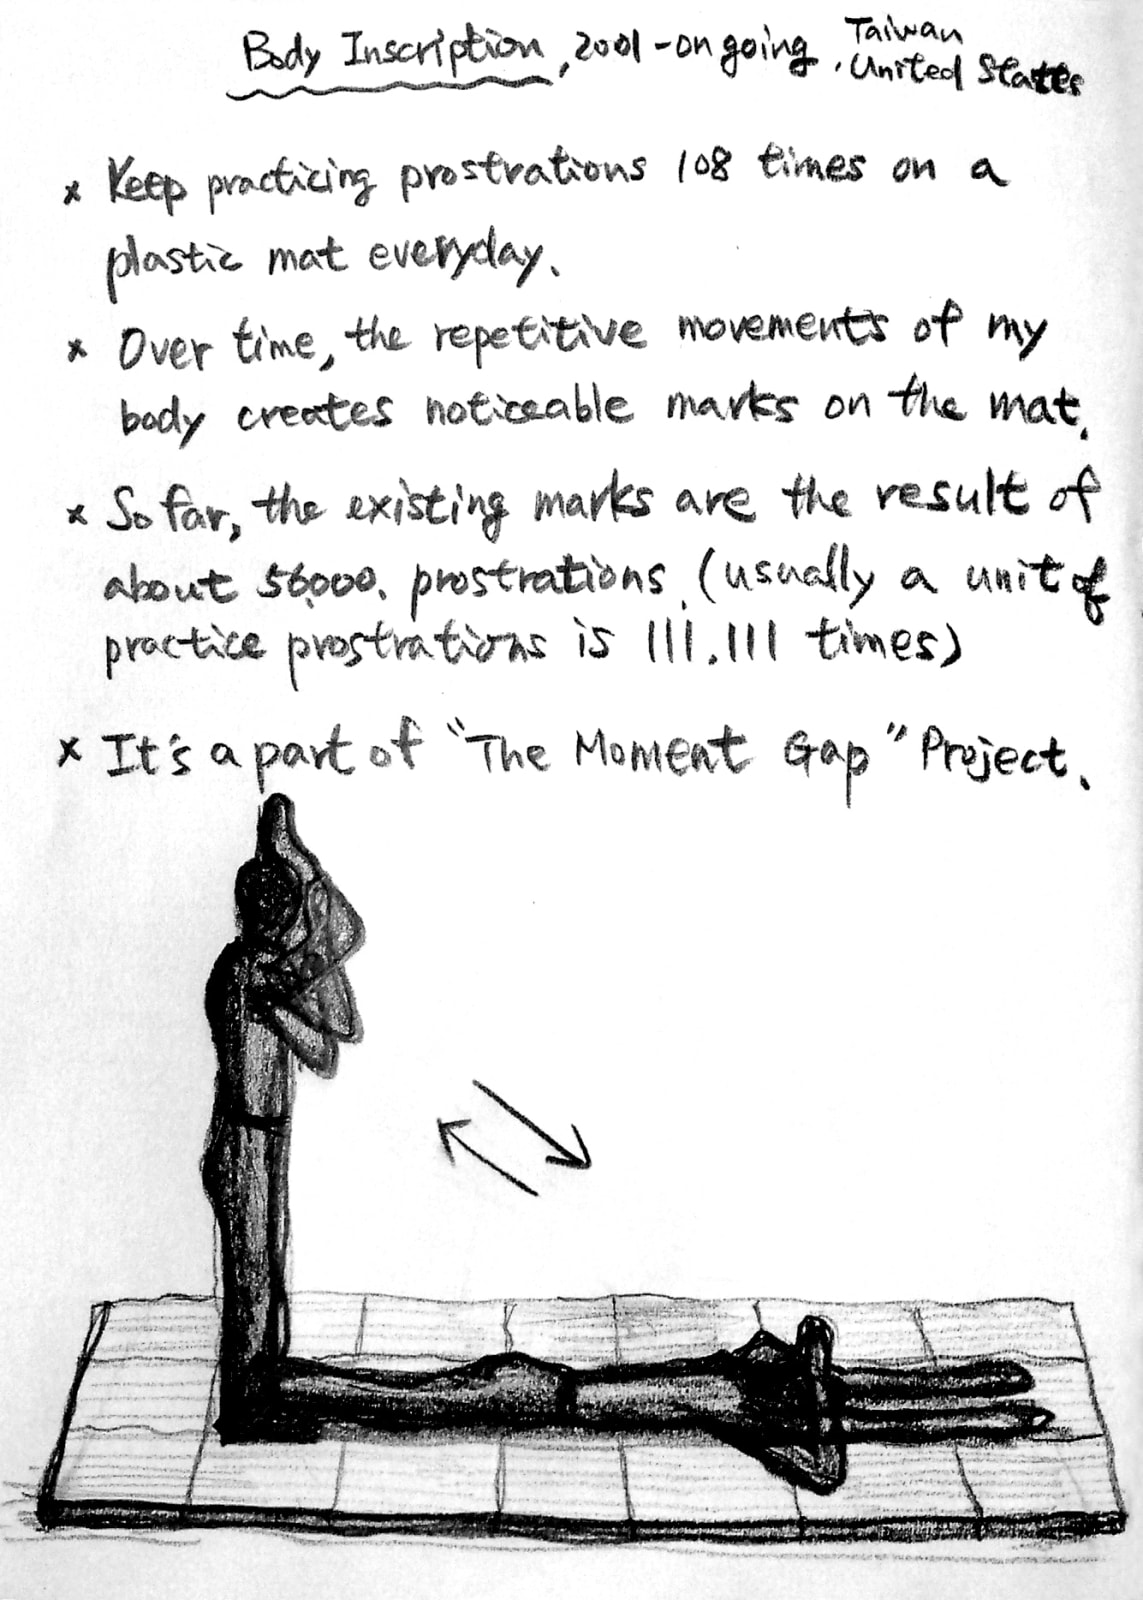 Body Inscription, 2001-ongoing, Taiwan
United States
x Keep practicing prostrations 108 times on a
plastic mat everyday.
x Over time, the repetitive movements of my
body creates noticeable marks on the mat.
x So far, the existing marks are the result of
about 56,000. prostrations. (usually a unit of
practice prostrations is 111.111 times)
x It's a part of "The Moment Gap" Project.